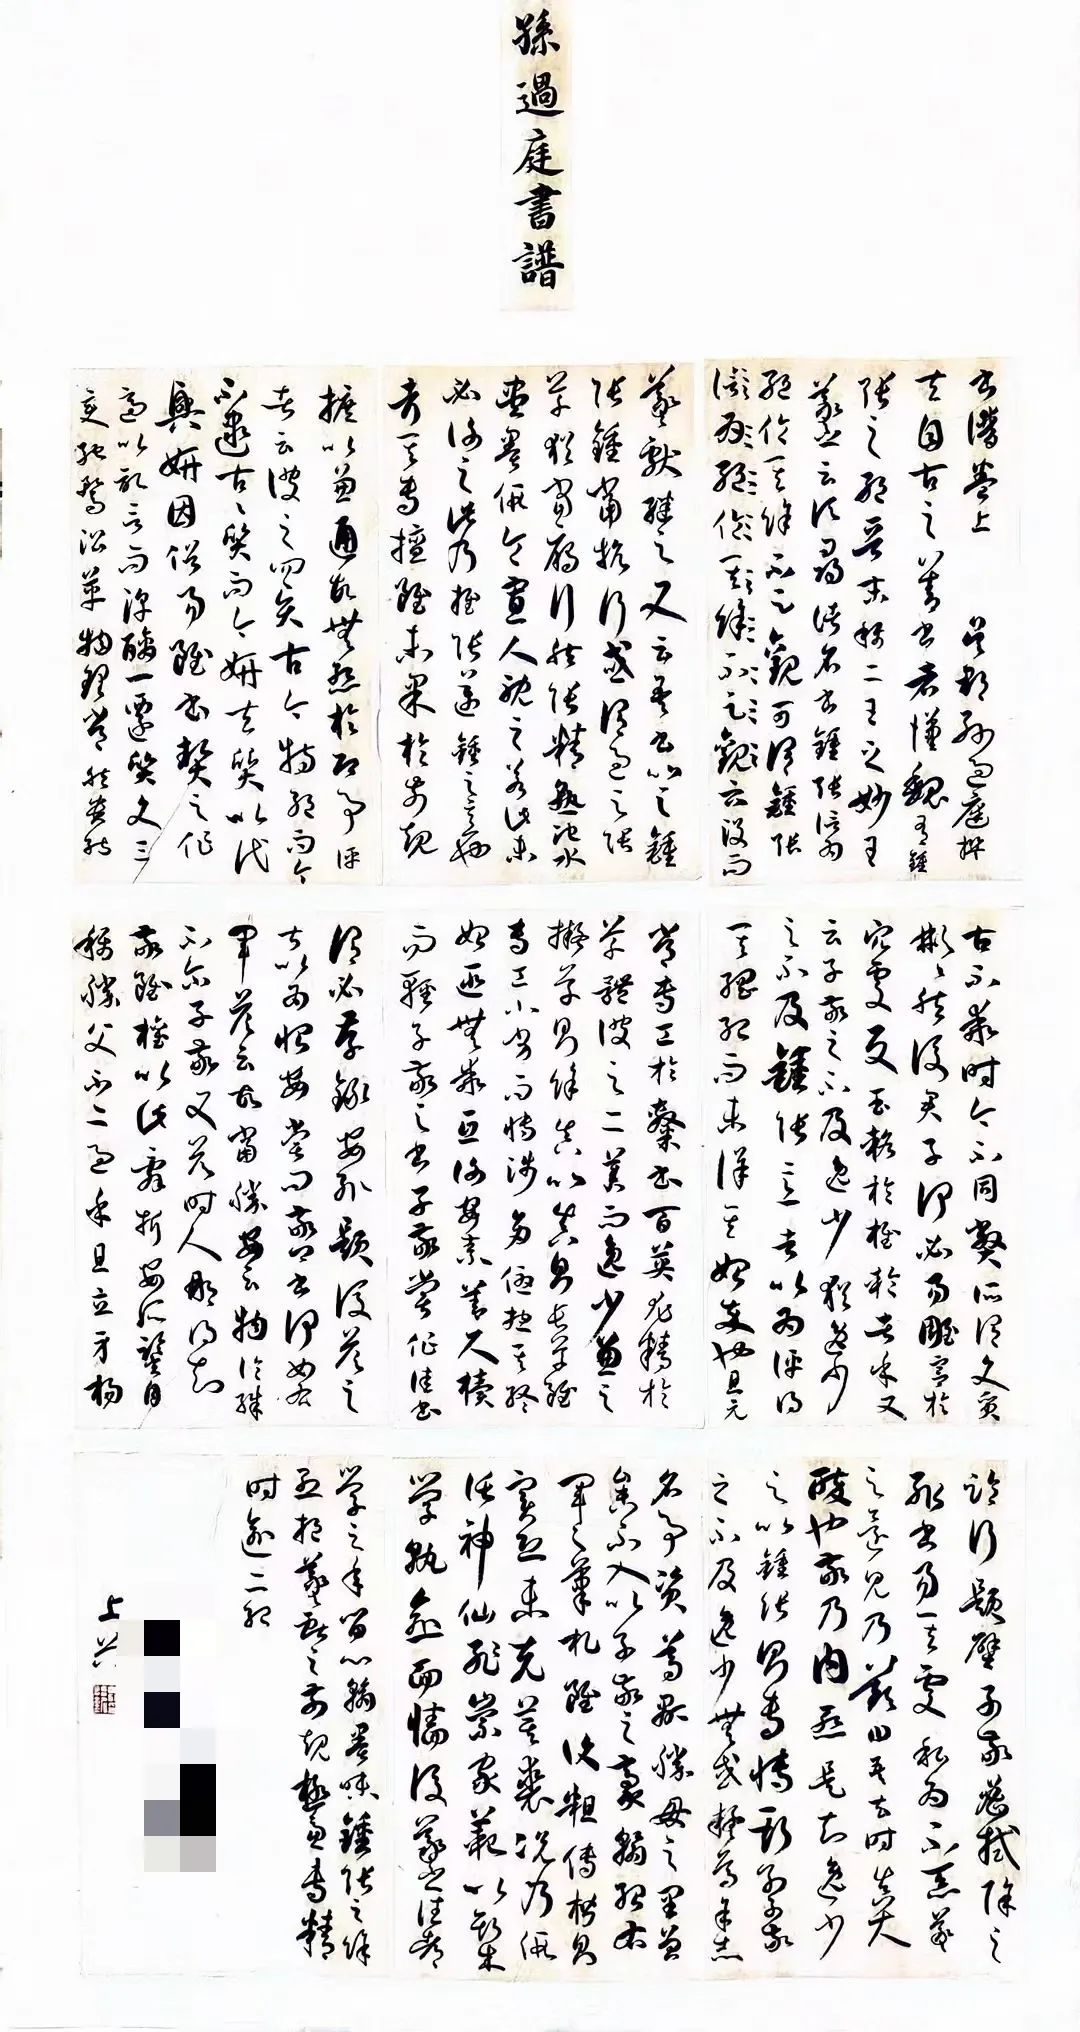 孫過庭書譜
書譜卷上 吳郡孫過庭撰
夫自古之善書者漢魏有鍾
張之絕晉末稱二王之妙王
羲之云頃尋諸名書鍾張信為
絕倫其餘不足觀可謂鍾張
信為絕倫其餘不足觀云沒而
羲獻繼之又云吾書比之鍾
張鍾當抗行或謂過之張
草猶當雁行然張精熟池水
盡墨假令寡人耽之若此未
必謝之此乃推張邁鍾之意也
考其專擅雖未果於前規
摭以兼通故無慙於即事評
者云彼之四賢古今特絕而今
不逮古古質而今妍夫質以代
興妍因俗易雖書契之作
適以記言而淳醨一遷質文三
變馳騖沿革物理常然貴能
古不乖時今不同弊所謂文質
彬彬然後君子何必易雕宮於
穴處反玉輅於椎輪者乎又
云子敬之不及逸少猶逸少
之不及鍾張意者以為評得
其綱紀而未詳其始卒也且元
常專工於隸書百英尤精於
草體彼之二美而逸少兼之
擬草則餘真比真則長草雖
專工小劣而博涉多優揔其終
始匪無乖互謝安素善尺牘
而輕子敬之書子敬嘗作佳書
謂必存錄安輒題後答之
甚以為恨安嘗問敬卿書何如右
軍答云故當勝安云物論殊
不爾子敬又答時人那得知
敬雖權以此辭折安所鑒自
稱勝父不亦過乎且立身揚
臨行題壁子敬密拭除之
輒書易其處私為不惡羲
之還見乃歎曰吾去時真大
醉也敬乃內慙是知逸少
之比鍾張則專博斯別子敬
之不及逸少無或疑焉余志
名事資尊顯勝母之里曾
參不入以子敬之豪翰紹右
軍之筆札雖復粗傳楷則
實恐未克箕裘況乃假
託神仙恥崇家範以斯成
學孰愈面牆後羲之往都
學之年留心翰墨味鍾張之餘
烈挹羲獻之前規極慮專精
時逾二紀